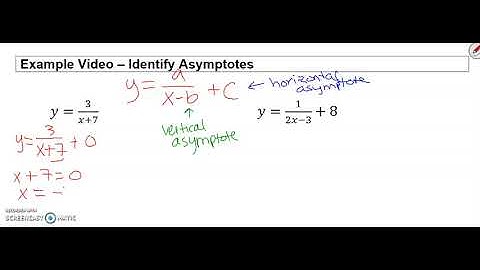 Example Video – Identify Asymptotes
y = a/(x-b) + C ← horizontal asymptote
↑ vertical asymptote
y = 3/(x+7)
y = 1/(2x−3) + 8
y = 3/(x+7) + 0
x + 7 = 0
x = -
RECORDED WITH
SCREENCAST MATIC